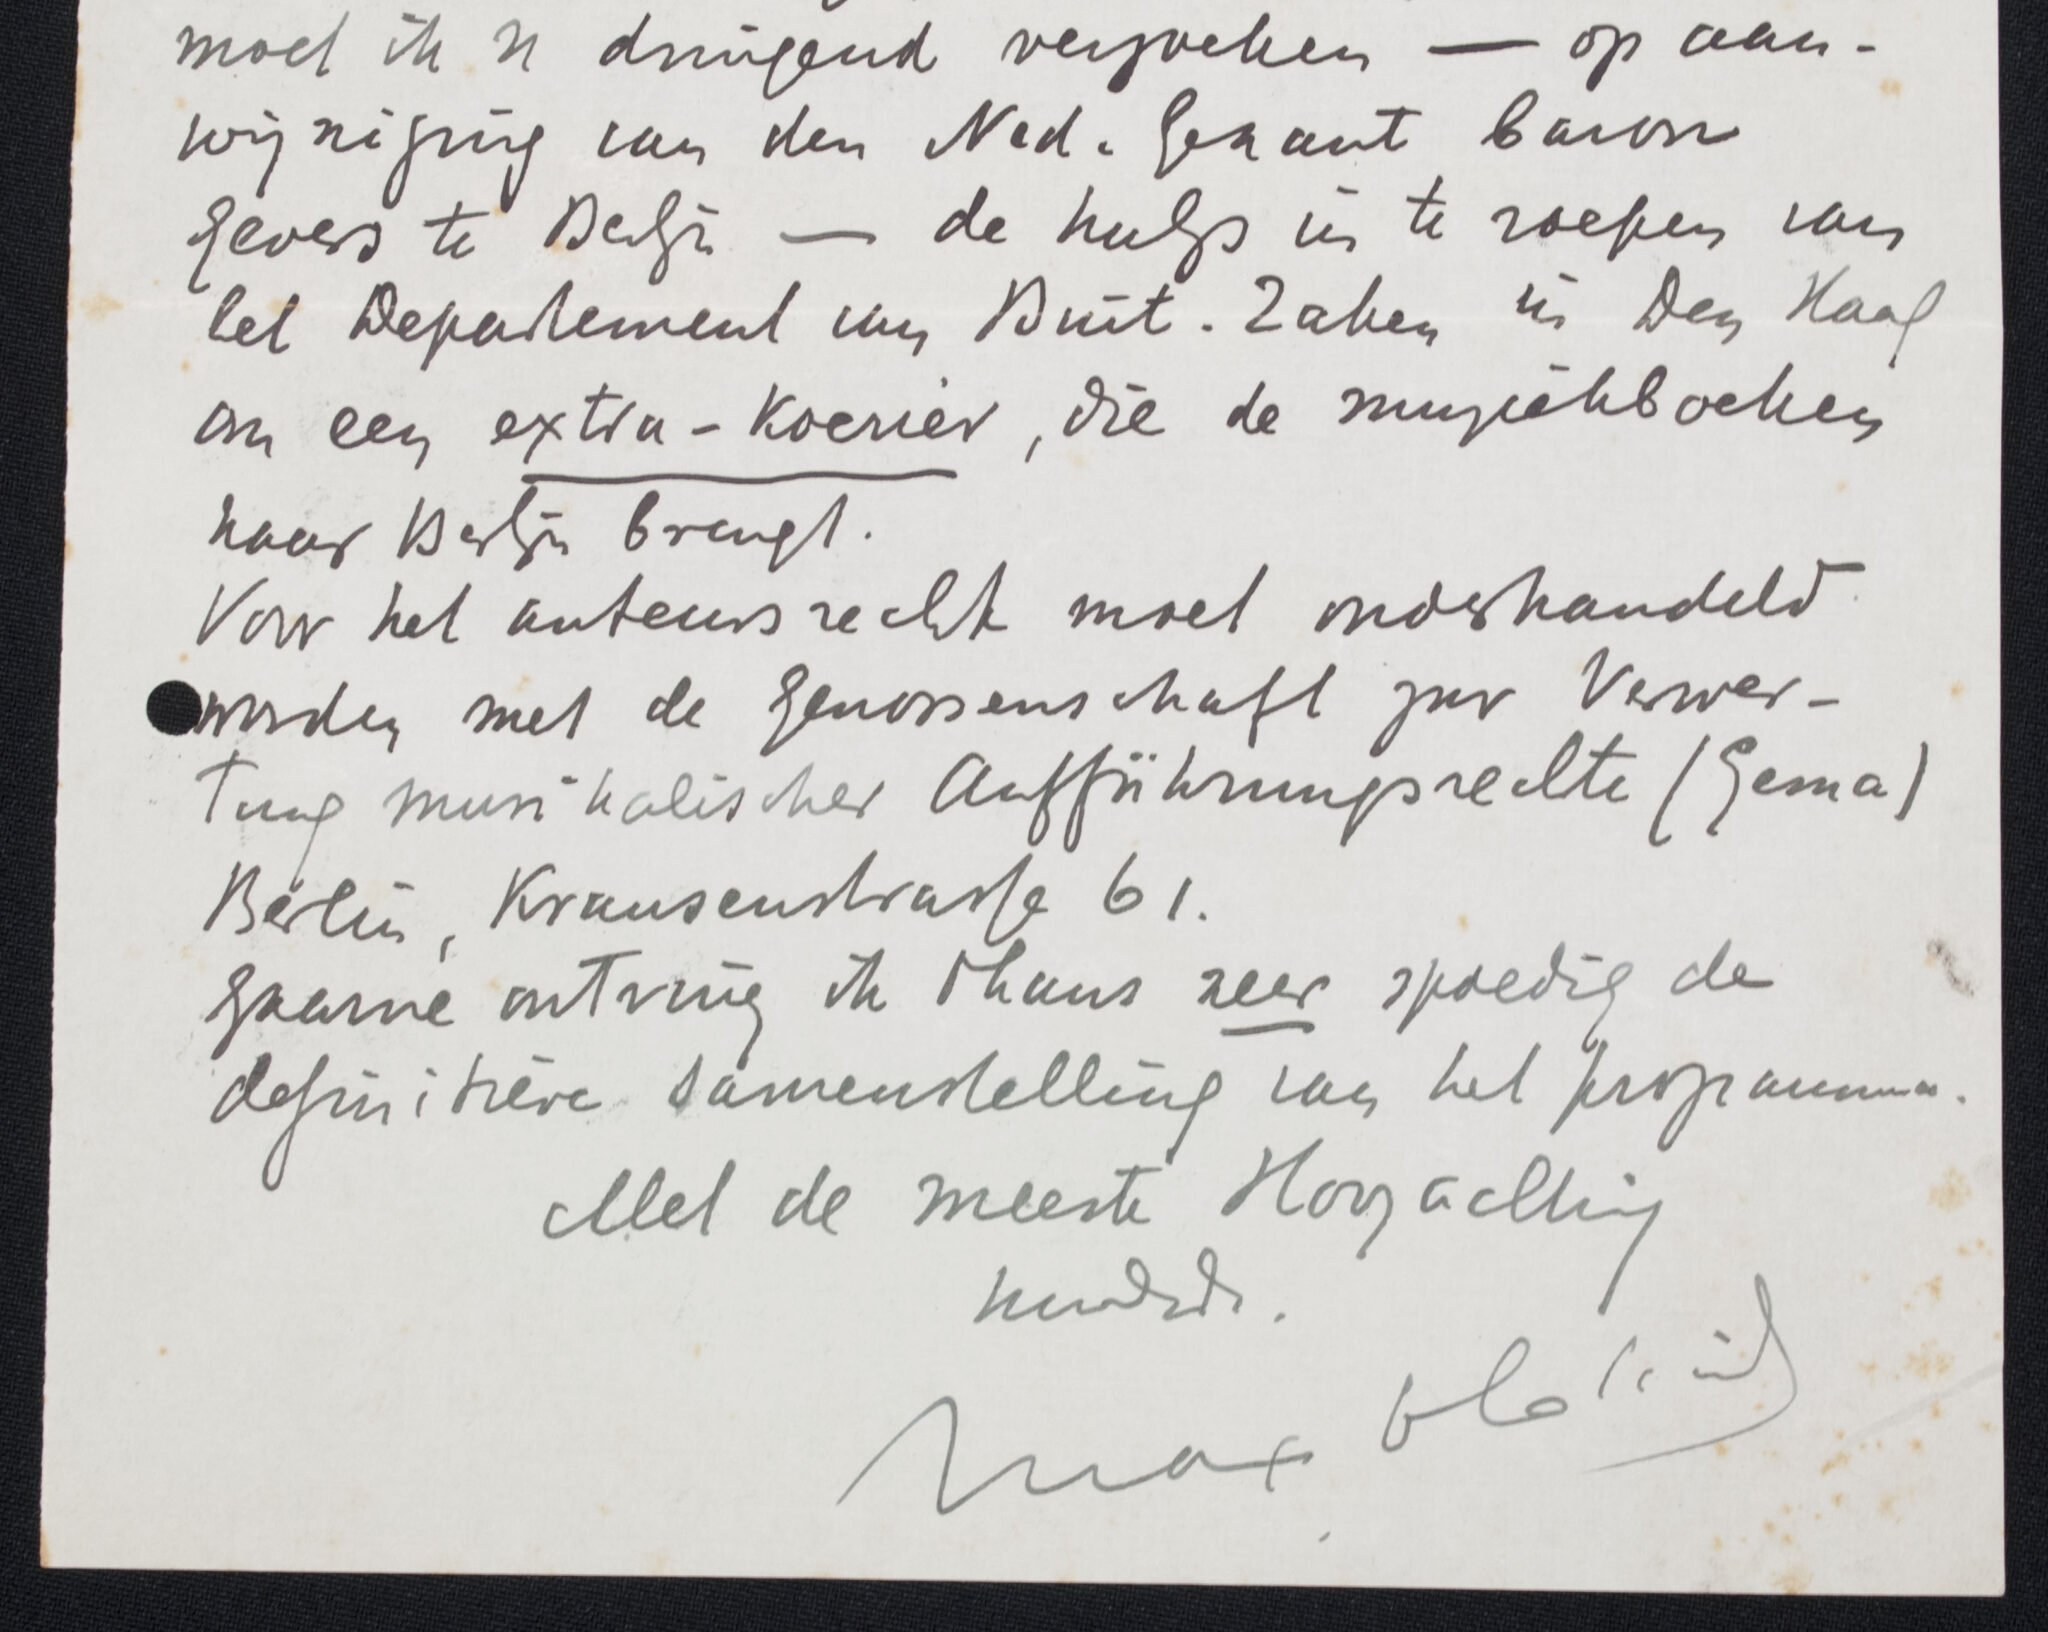 moet ik U dringend verzoeken — op aan-
wijziging van den Ned. Gezant baron
Gevers te Berlijn — de hulp in te roepen van
het Departement van Buit. Zaken in Den Haag
om een extra-koerier, die de muziekboeken
naar Berlijn brengt.
Voor het auteursrecht moet onderhandeld
worden met de Genossenschaft zur Verwer-
tung musikalischer Aufführungsrechte (Gema)
Berlin, Krausenstrasse 61.
Gaarne ontving ik thans zeer spoedig de
definitieve samenstelling van het programma.
Met de meeste Hoogachting
Max